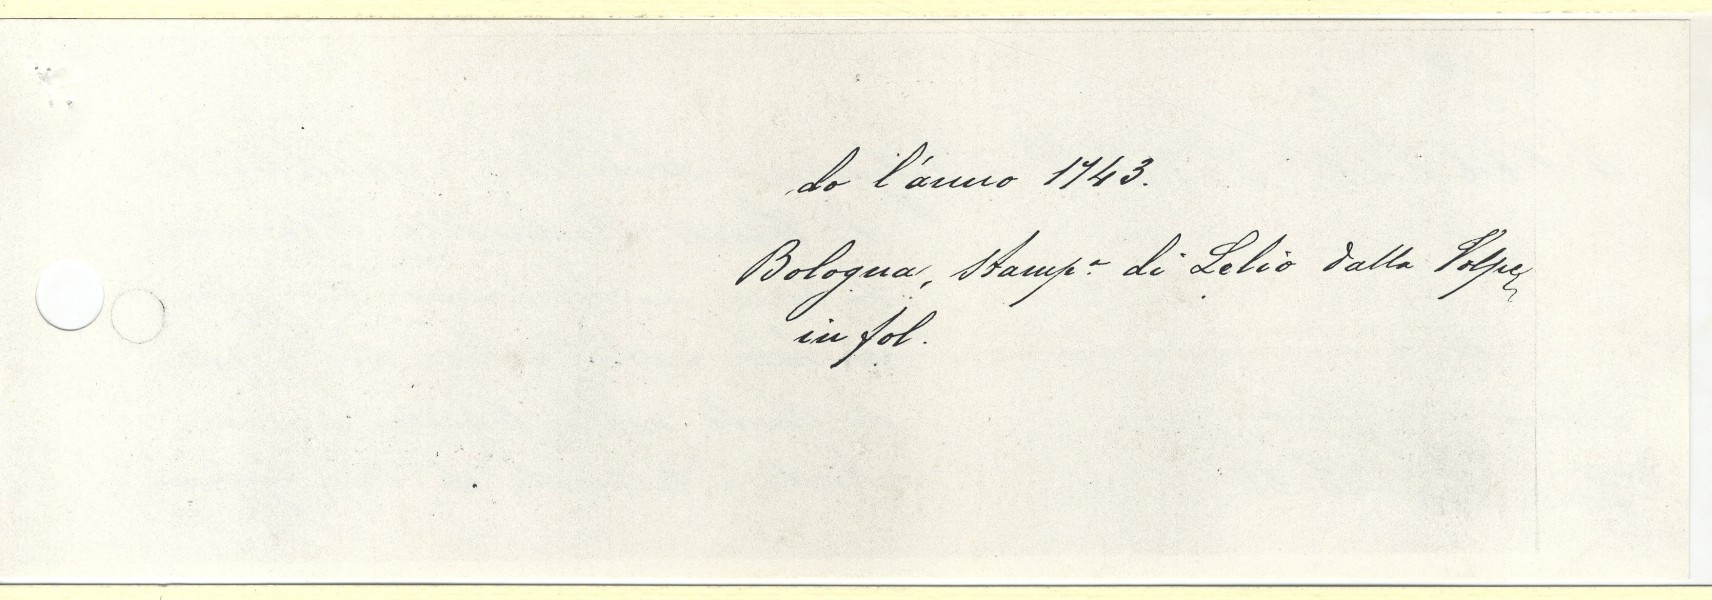 do l'anno 1743.
Bologna, stamp.a di Lelio dalla Volpe,
in fol.